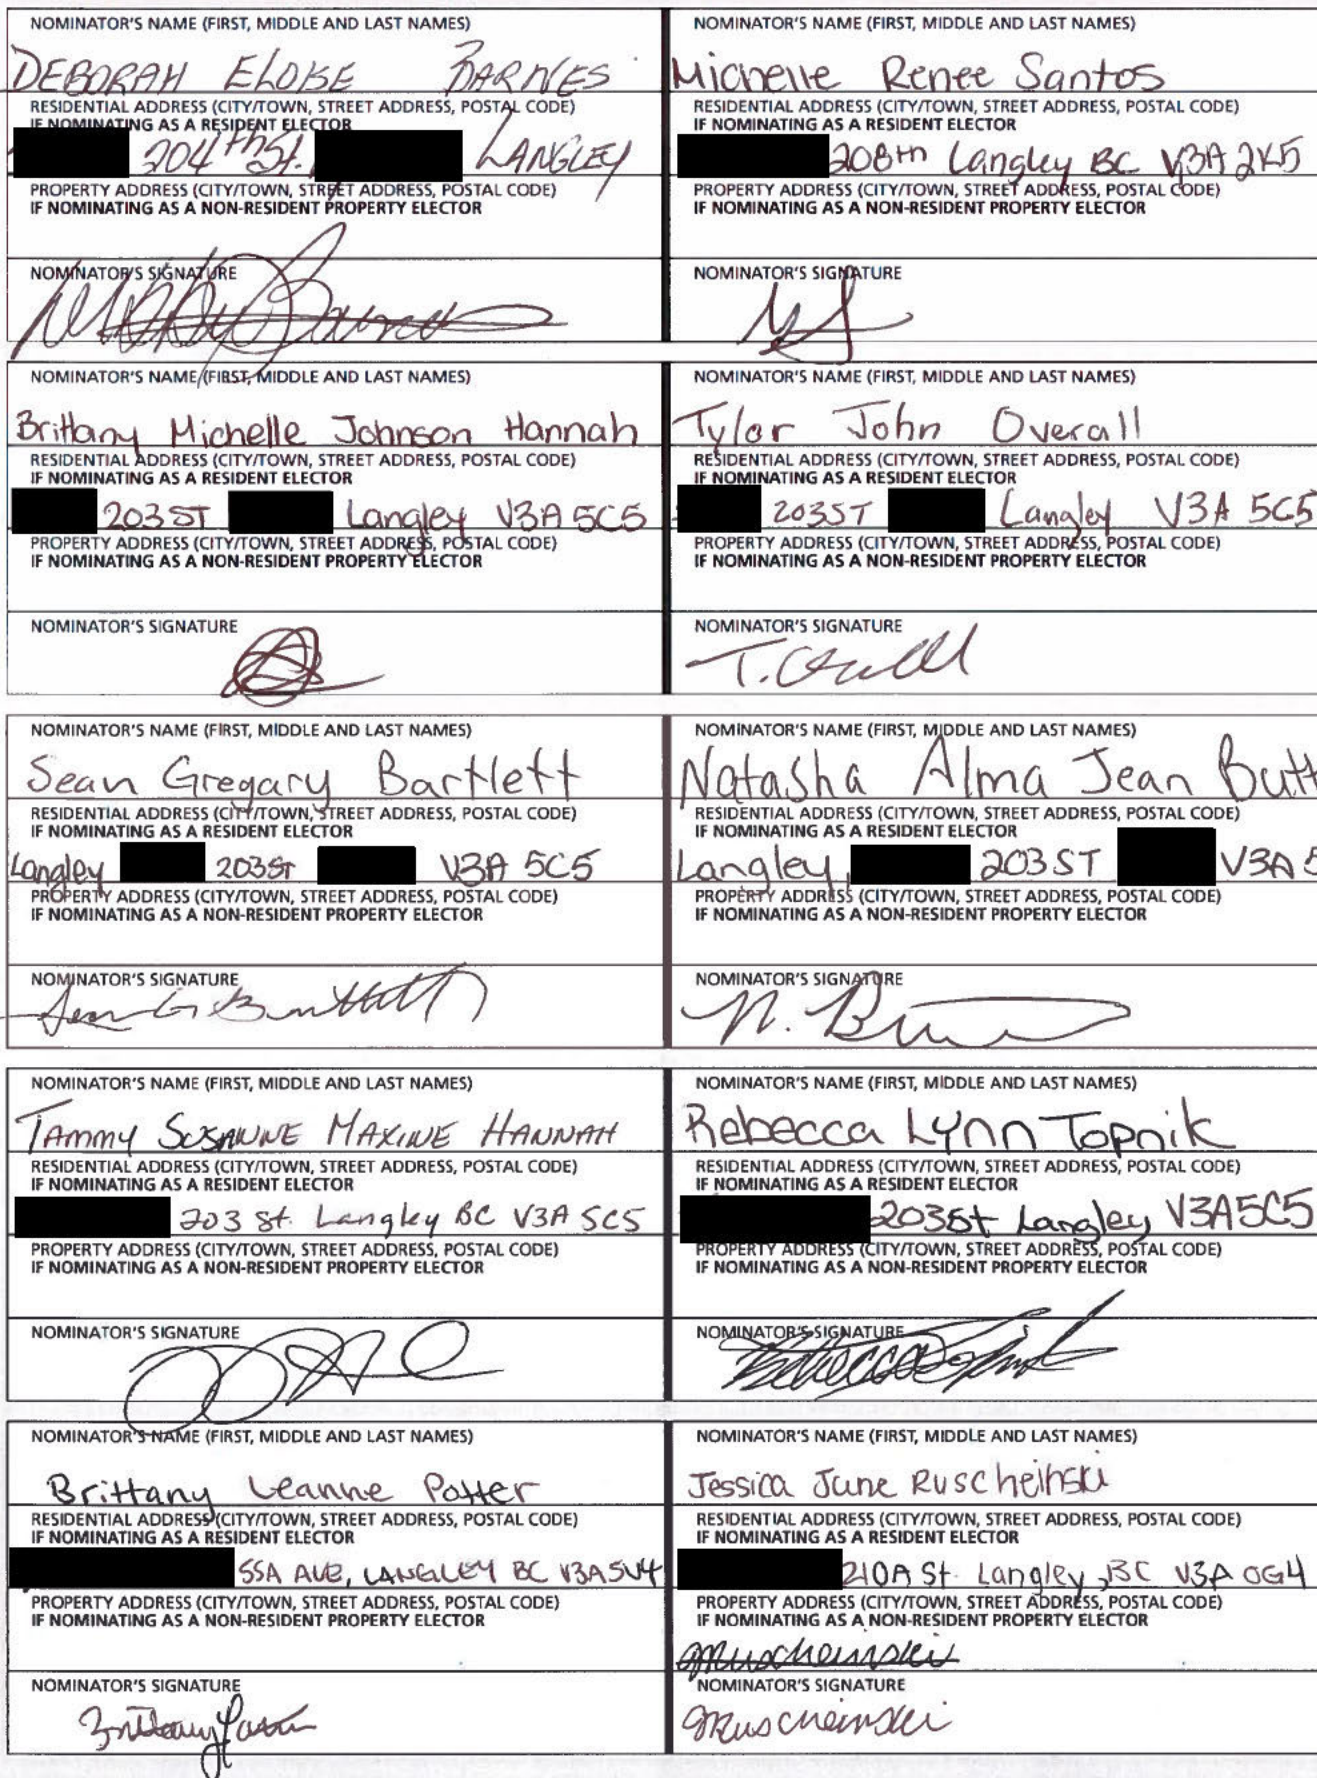 NOMINATOR'S NAME (FIRST, MIDDLE AND LAST NAMES)
DEBORAH ELOISE BARNES
RESIDENTIAL ADDRESS (CITY/TOWN, STREET ADDRESS, POSTAL CODE)
IF NOMINATING AS A RESIDENT ELECTOR
204th St. LANGLEY
PROPERTY ADDRESS (CITY/TOWN, STREET ADDRESS, POSTAL CODE)
IF NOMINATING AS A NON-RESIDENT PROPERTY ELECTOR
NOMINATOR'S SIGNATURE
NOMINATOR'S NAME (FIRST, MIDDLE AND LAST NAMES)
Michelle Renee Santos
RESIDENTIAL ADDRESS (CITY/TOWN, STREET ADDRESS, POSTAL CODE)
IF NOMINATING AS A RESIDENT ELECTOR
208th Langley BC V3A 2K5
PROPERTY ADDRESS (CITY/TOWN, STREET ADDRESS, POSTAL CODE)
IF NOMINATING AS A NON-RESIDENT PROPERTY ELECTOR
NOMINATOR'S SIGNATURE
NOMINATOR'S NAME (FIRST, MIDDLE AND LAST NAMES)
Brittany Michelle Johnson Hannah
RESIDENTIAL ADDRESS (CITY/TOWN, STREET ADDRESS, POSTAL CODE)
IF NOMINATING AS A RESIDENT ELECTOR
203 ST Langley V3A 5C5
PROPERTY ADDRESS (CITY/TOWN, STREET ADDRESS, POSTAL CODE)
IF NOMINATING AS A NON-RESIDENT PROPERTY ELECTOR
NOMINATOR'S SIGNATURE
NOMINATOR'S NAME (FIRST, MIDDLE AND LAST NAMES)
Tylor John Overall
RESIDENTIAL ADDRESS (CITY/TOWN, STREET ADDRESS, POSTAL CODE)
IF NOMINATING AS A RESIDENT ELECTOR
203ST Langley V3A 5C5
PROPERTY ADDRESS (CITY/TOWN, STREET ADDRESS, POSTAL CODE)
IF NOMINATING AS A NON-RESIDENT PROPERTY ELECTOR
NOMINATOR'S SIGNATURE
T. Overall
NOMINATOR'S NAME (FIRST, MIDDLE AND LAST NAMES)
Sean Gregary Bartlett
RESIDENTIAL ADDRESS (CITY/TOWN, STREET ADDRESS, POSTAL CODE)
IF NOMINATING AS A RESIDENT ELECTOR
Langley 203St V3A 5C5
PROPERTY ADDRESS (CITY/TOWN, STREET ADDRESS, POSTAL CODE)
IF NOMINATING AS A NON-RESIDENT PROPERTY ELECTOR
NOMINATOR'S SIGNATURE
Sean G Bartlett
NOMINATOR'S NAME (FIRST, MIDDLE AND LAST NAMES)
Natasha Alma Jean Butt
RESIDENTIAL ADDRESS (CITY/TOWN, STREET ADDRESS, POSTAL CODE)
IF NOMINATING AS A RESIDENT ELECTOR
Langley, 203 ST V3A 5
PROPERTY ADDRESS (CITY/TOWN, STREET ADDRESS, POSTAL CODE)
IF NOMINATING AS A NON-RESIDENT PROPERTY ELECTOR
NOMINATOR'S SIGNATURE
NOMINATOR'S NAME (FIRST, MIDDLE AND LAST NAMES)
TAMMY SUSANNE MAXINE HANNAH
RESIDENTIAL ADDRESS (CITY/TOWN, STREET ADDRESS, POSTAL CODE)
IF NOMINATING AS A RESIDENT ELECTOR
203 St. Langley BC V3A 5C5
PROPERTY ADDRESS (CITY/TOWN, STREET ADDRESS, POSTAL CODE)
IF NOMINATING AS A NON-RESIDENT PROPERTY ELECTOR
NOMINATOR'S SIGNATURE
NOMINATOR'S NAME (FIRST, MIDDLE AND LAST NAMES)
Rebecca Lynn Topnik
RESIDENTIAL ADDRESS (CITY/TOWN, STREET ADDRESS, POSTAL CODE)
IF NOMINATING AS A RESIDENT ELECTOR
203St Langley V3A5C5
PROPERTY ADDRESS (CITY/TOWN, STREET ADDRESS, POSTAL CODE)
IF NOMINATING AS A NON-RESIDENT PROPERTY ELECTOR
NOMINATOR'S SIGNATURE
NOMINATOR'S NAME (FIRST, MIDDLE AND LAST NAMES)
Brittany Leanne Potter
RESIDENTIAL ADDRESS (CITY/TOWN, STREET ADDRESS, POSTAL CODE)
IF NOMINATING AS A RESIDENT ELECTOR
55A AVE, LANGLEY BC V3A5V4
PROPERTY ADDRESS (CITY/TOWN, STREET ADDRESS, POSTAL CODE)
IF NOMINATING AS A NON-RESIDENT PROPERTY ELECTOR
NOMINATOR'S SIGNATURE
NOMINATOR'S NAME (FIRST, MIDDLE AND LAST NAMES)
Jessica June Ruscheinski
RESIDENTIAL ADDRESS (CITY/TOWN, STREET ADDRESS, POSTAL CODE)
IF NOMINATING AS A RESIDENT ELECTOR
210A St. Langley, BC V3A 0G4
PROPERTY ADDRESS (CITY/TOWN, STREET ADDRESS, POSTAL CODE)
IF NOMINATING AS A NON-RESIDENT PROPERTY ELECTOR
JRuscheinski
NOMINATOR'S SIGNATURE
JRuscheinski